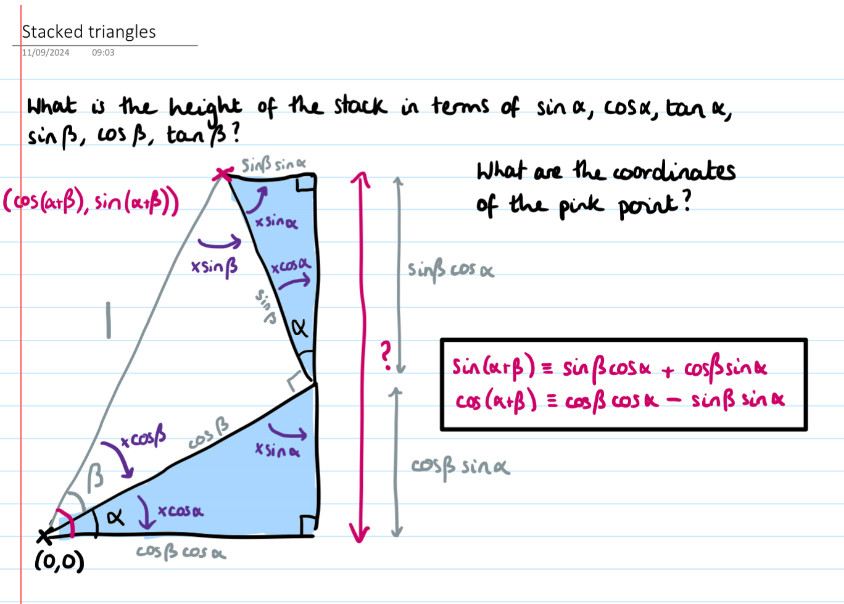 Stacked triangles
11/09/2024 09:03
What is the height of the stack in terms of sin α, cos α, tan α,
sin β, cos β, tan β?
What are the coordinates
of the pink point?
sinβ sinα
(cos(α+β), sin(α+β))
×sinα
×sinβ
×cosα
sinβ
α
1
sinβ cosα
?
sin(α+β) ≡ sinβcosα + cosβsinα
cos(α+β) ≡ cosβ cosα − sinβ sinα
×cosβ
cosβ
×sinα
β
cosβ sinα
α
×cosα
cosβ cosα
(0,0)